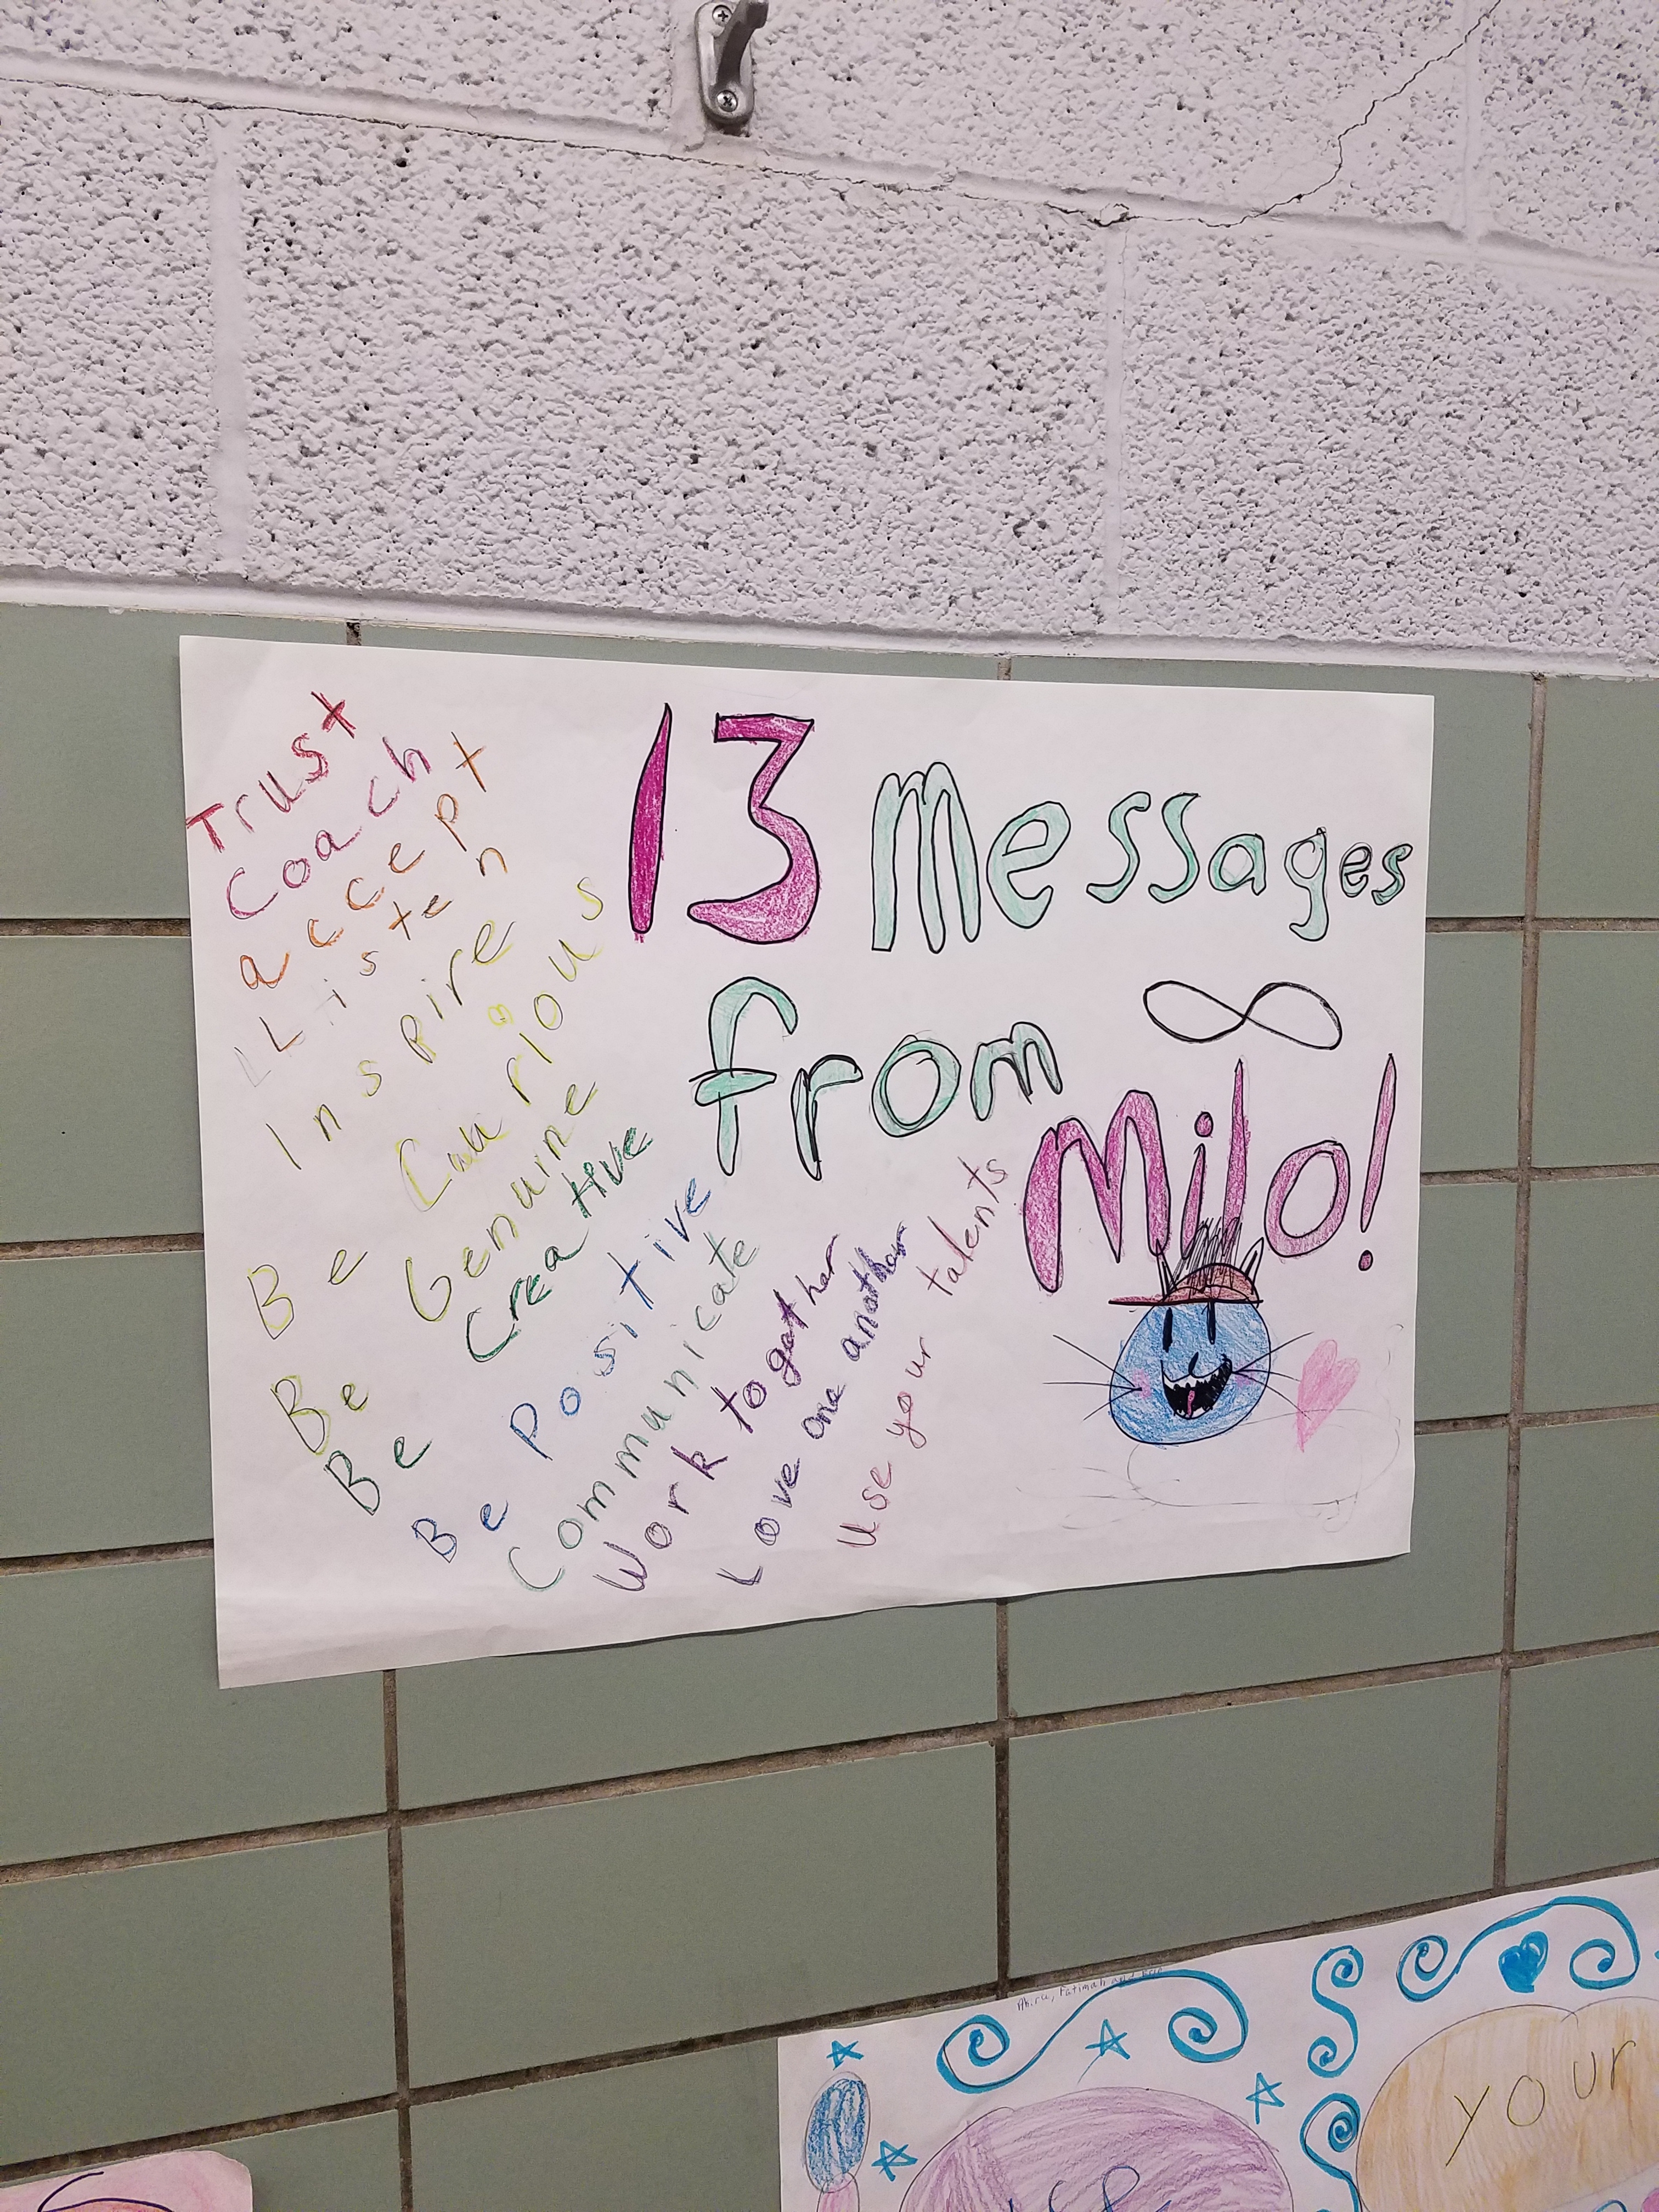 13 Messages
from
Milo!
Trust
Coach
accept
Listen
Inspire
Be Curious
Be Genuine
Be Creative
Be Positive
Communicate
Work togather
Love one another
Use your talents
your